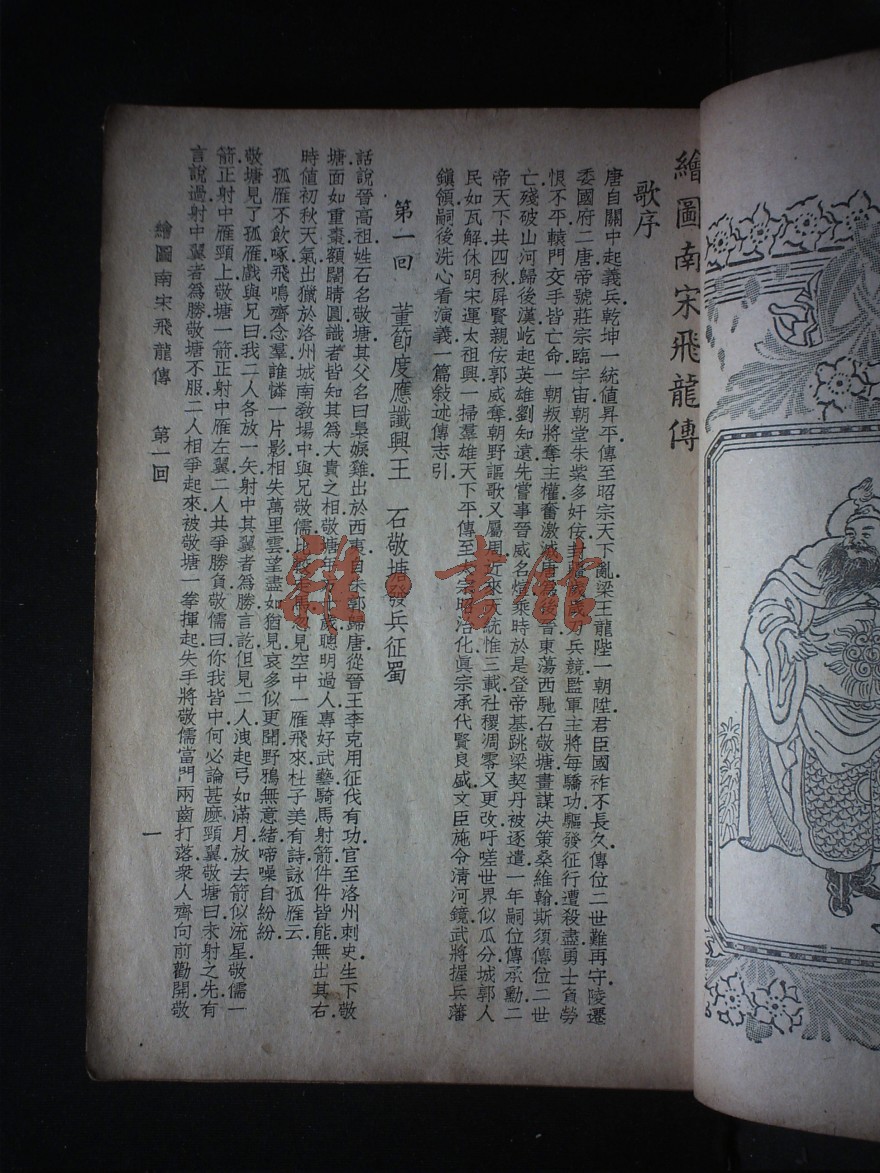 繪圖南宋飛龍傳
歌序
唐自關中起義兵乾坤一統値昇平傳至昭宗天下亂梁王龍陛一朝陞君臣國祚不長久傳位二世難再守陵遷
委國府二唐帝號莊宗臨宇宙朝堂朱紫多奸佞
兵競監軍主將每驕功驅發征行遭殺盡勇士負勞
恨不平轅門交手皆亡命一朝叛將奪主權奮激滅唐
後晉東蕩西馳石敬塘畫謀決策桑維翰斯須僖位二世
亡殘破山河歸後漢屹起英雄劉知遠先嘗事晉威名煊乘時於是登帝基跳梁契丹被逐遣一年嗣位傳承勳二
帝天下共四秋屏賢親佞郭威奪朝野謳歌又屬周近來大統惟三載社稷凋零又更改吁嗟世界似瓜分城郭人
民如瓦解休明宋運太祖興一掃羣雄天下平傳至太宗昭治化眞宗承代賢良盛文臣施令淸河鏡武將握兵藩
鎭領嗣後洗心看演義一篇敍述傳志引
第一回 董節度應讖興王 石敬塘發兵征蜀
話說晉高祖姓石名敬塘其父名曰臬娛雞出於西夷自朱
歸唐從晉王李克用征伐有功官至洛州刺史生下敬
塘面如重棗額闊睛圓識者皆知其爲大貴之相敬塘年方
歲聰明過人專好武藝騎馬射箭件件皆能無出其右
時値初秋天氣出獵於洛州城南敎場中與兄敬儒比
見空中一雁飛來杜子美有詩詠孤雁云
孤雁不飲啄飛鳴齊念羣誰憐一片影相失萬里雲望盡如猶見哀多似更聞野鴉無意緖啼噪自紛紛
敬塘見了孤雁戲與兄曰我二人各放一矢射中其翼者爲勝言訖但見二人洩起弓如滿月放去箭似流星敬儒一
箭正射中雁頸上敬塘一箭正射中雁左翼二人共爭勝負敬儒曰你我皆中何必論甚麼頸翼敬塘曰未射之先有
言說過射中翼者爲勝敬塘不服二人相爭起來被敬塘一拳揮起失手將敬儒當門兩齒打落衆人齊向前勸開敬
繪圖南宋飛龍傳 第一回
一
雜·書館